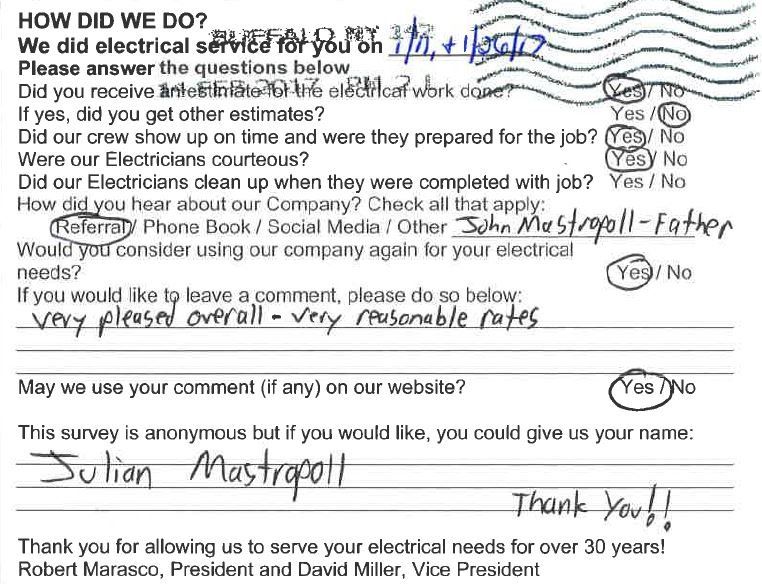 HOW DID WE DO?
BUFFALO NY 142
We did electrical service for you on 1/11, + 1/26/17
Please answer the questions below
14 FEB 2017 PM 2 L
Did you receive an estimate for the electrical work done? Yes / No
If yes, did you get other estimates? Yes / No
Did our crew show up on time and were they prepared for the job? Yes / No
Were our Electricians courteous? Yes / No
Did our Electricians clean up when they were completed with job? Yes / No
How did you hear about our Company? Check all that apply:
Referral / Phone Book / Social Media / Other John Mastropoll - Father
Would you consider using our company again for your electrical
needs? Yes / No
If you would like to leave a comment, please do so below:
very pleased overall - very reasonable rates
May we use your comment (if any) on our website? Yes / No
This survey is anonymous but if you would like, you could give us your name:
Julian Mastropoll
Thank You!!
Thank you for allowing us to serve your electrical needs for over 30 years!
Robert Marasco, President and David Miller, Vice President